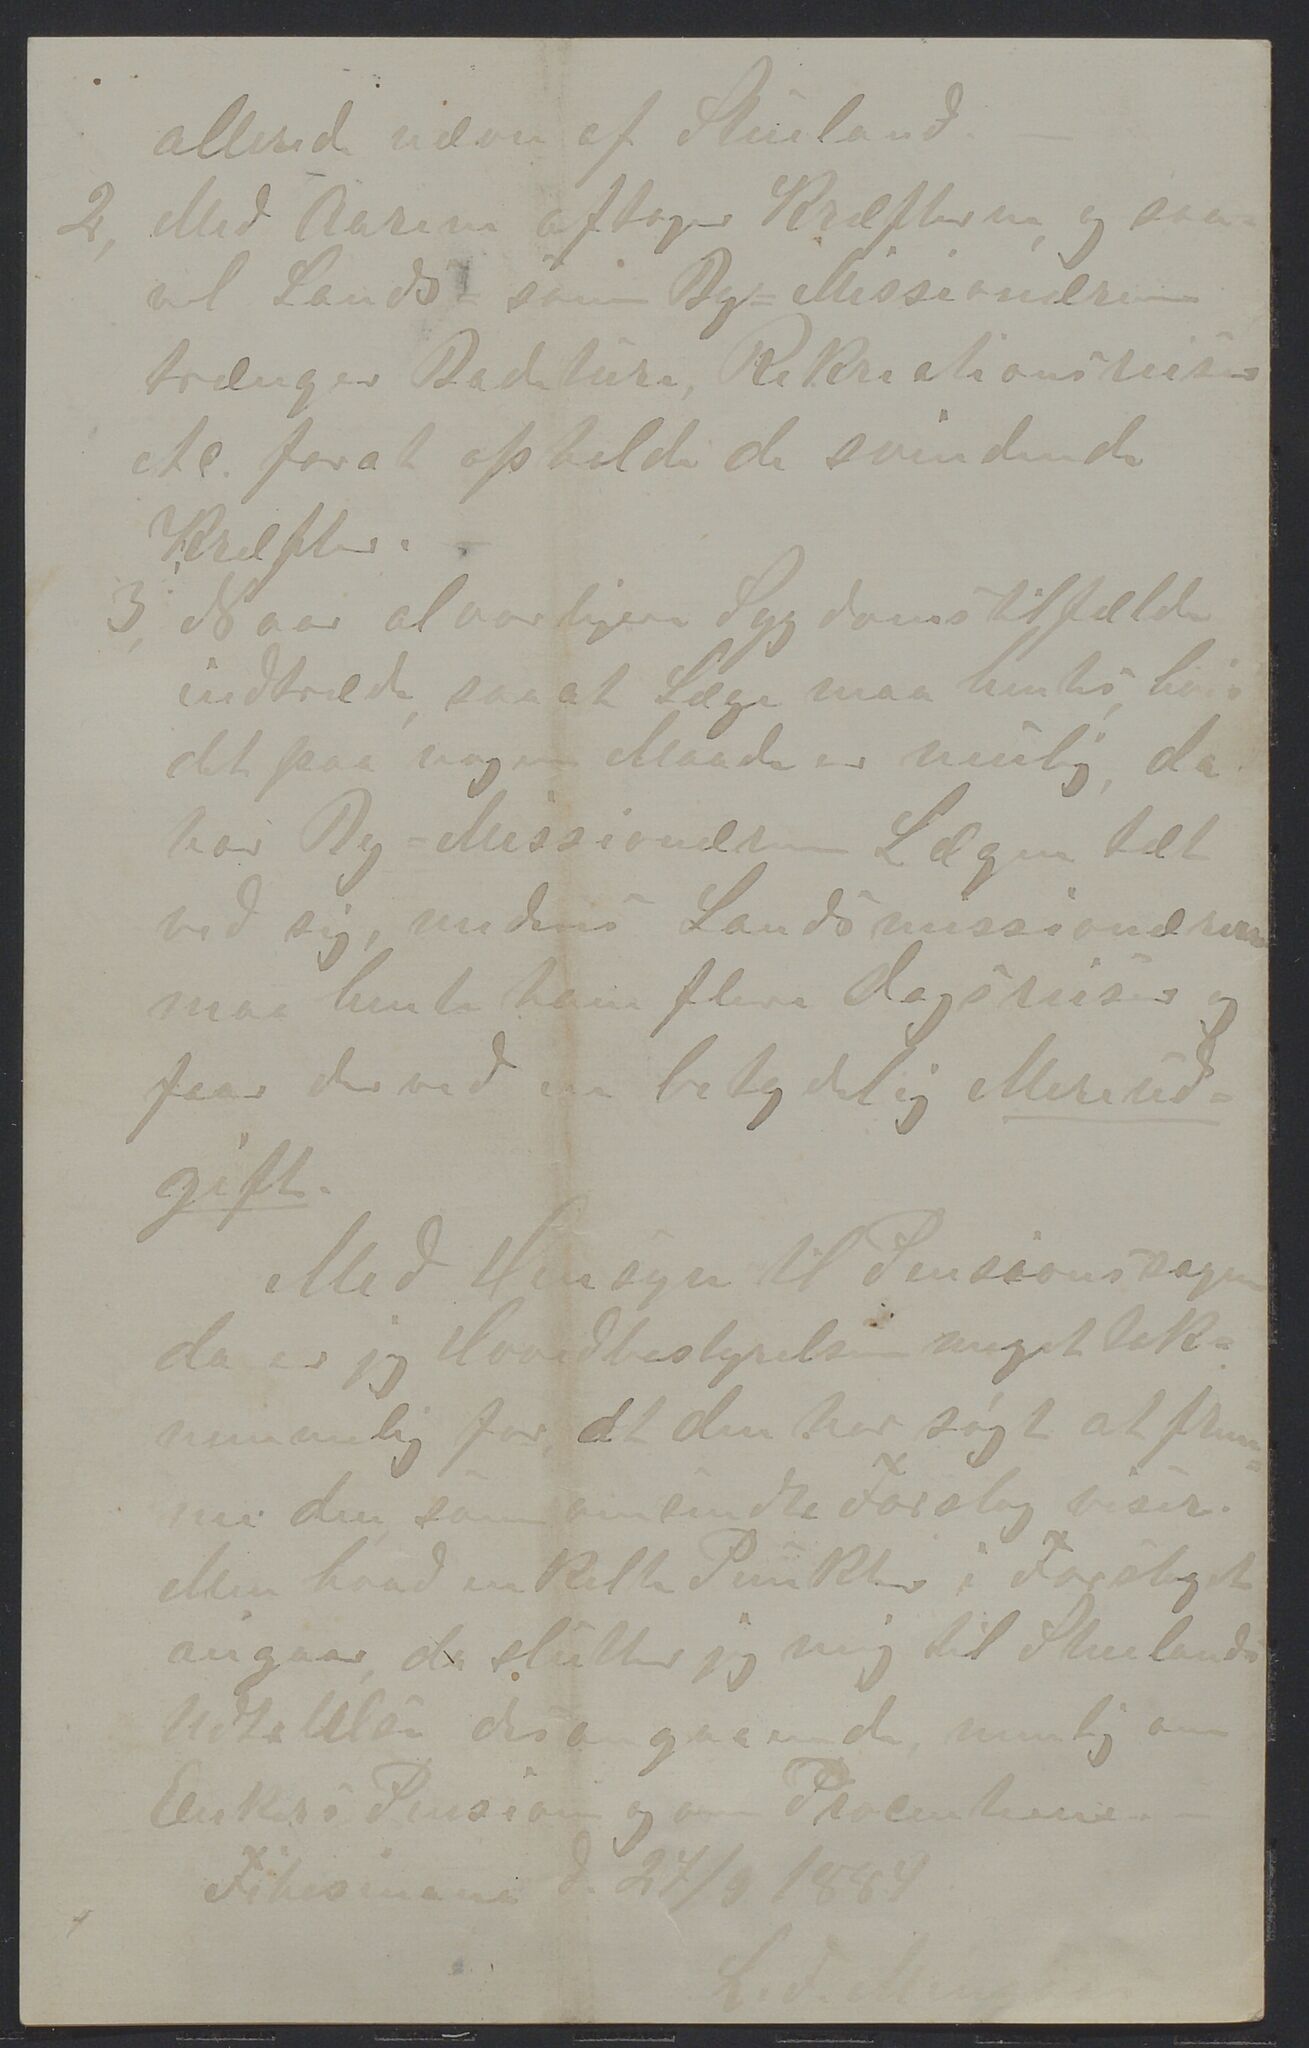 allerede nævn af Stueland. —
2, Med Aarene aftager Kræfterne, og saa-
vel Lands- som By-Missionærerne
trænger Badeture, Rekreationsreiser
etc. forat opholde de svindende
Kræfter. —
3, Naar alvorligere Sygdomstilfælde
indtræde, saa at Læge maa hentes, hvis
det paa nogen Maade er mulig, da
har By-Missionæren Lægen tæt
ved sig, medens Landsmissionæren
maa hente ham flere Dagsreiser og
faar derved en betydelig Mereud-
gift.
Med Hensyn til Pensionssagen
da er jeg Hovedbestyrelsen meget tak-
nemmelig for, at den har søgt at frem-
me den, som omsendte Forslag viser.
Men hvad enkelte Punkter i Forslaget
angaar, da slutter jeg mig til Stuelands
Udtalelse desangaaende, nemlig om
Enkers Pension og om Procenterne. —
Fihasinana d. 27/9 1889